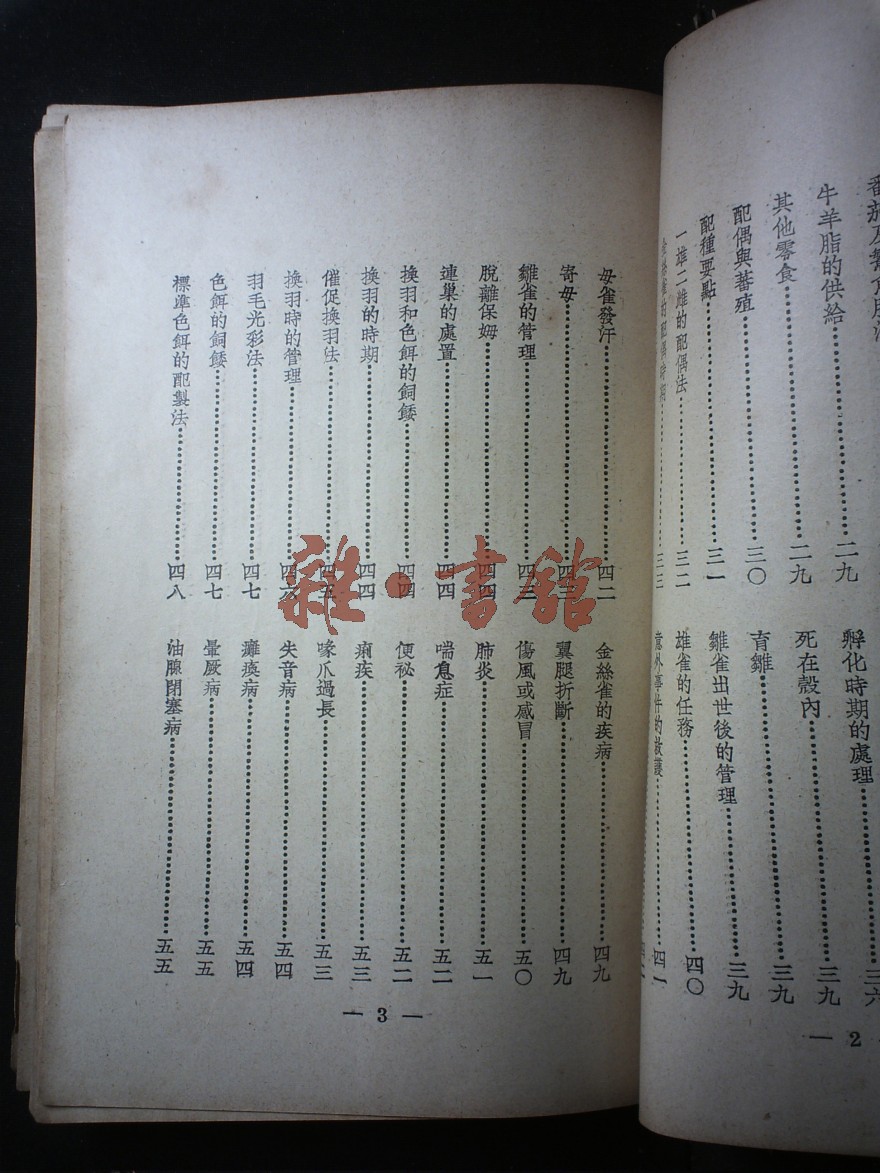 牛羊脂的供給……二九
其他零食……二九
配偶與蓄殖……三〇
配種要點……三一
一雄二雌的配偶法……三二
金絲雀的配偶時期……三三
孵化時期的處理……三六
死在殼內……三九
育雛……三九
雛雀出世後的管理……三九
雄雀的任務……四〇
意外事件的救護……四一
— 2
母雀發汗……四二
寄母……四三
雛雀的管理……四三
脫離保姆……四四
連巢的處置……四四
換羽和色餌的飼餧……四四
換羽的時期……四四
催促換羽法……四五
換羽時的管理……四六
羽毛光彩法……四七
色餌的飼餧……四七
標準色餌的配製法……四八
金絲雀的疾病……四九
翼腿折斷……四九
傷風或感冒……五〇
肺炎……五一
喘息症……五二
便祕……五二
痢疾……五三
喙爪過長……五三
失音病……五四
癱瘓病……五四
暈厥病……五五
油腺閉塞病……五五
— 3 —
雜·書館